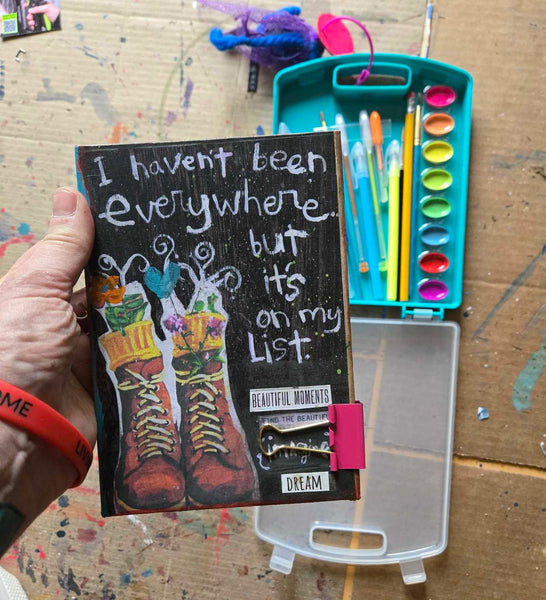 I haven't been
everywhere
but
it's
on my
List.
BEAUTIFUL MOMENTS
FIND THE BEAUTIFUL
DREAM
OME
LIV